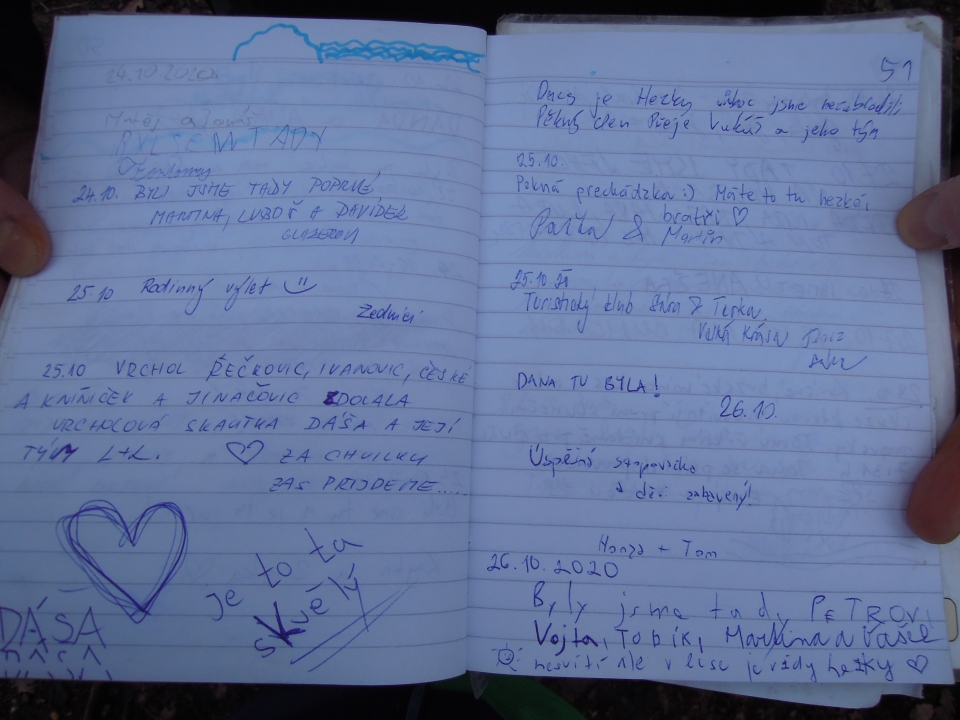 24.10.2020
JSEM TADY
24.10. BYLI JSME TADY POPRVÉ,
MARTINA, LUBOŠ A DAVÍDEK
25.10 Rodinný výlet
Zedníci
25.10 VRCHOL ŘEČKOVIC, IVANOVIC, ČESKÉ
A KNÍNIČEK A JINAČOVIC ZDOLALA
VRCHOLOVÁ SKAUTKA DÁŠA A JEJÍ
TÝM L+L. ♡ ZA CHVILKU
ZAS PŘIJDEME.....
je to ta
skvělý
DÁŠA
51
Dnes je Hezky vůbec jsme nezabloudili
Pěkný den Přeje Vukáš a jeho tým
25.10.
Pěkná prechádzka :) Máte to tu hezké,
bratři ♡
& Martin
25.10
Turistický klub &
DANA TU BYLA!
26.10.
Úspěšní
a děti zabavený!
Honza + Tom
26.10.2020
Byly jsme tady PETROVI
Vojta, Tobík, Martina a Vašek
nesvítí ale v lese je vždy hezky ♡